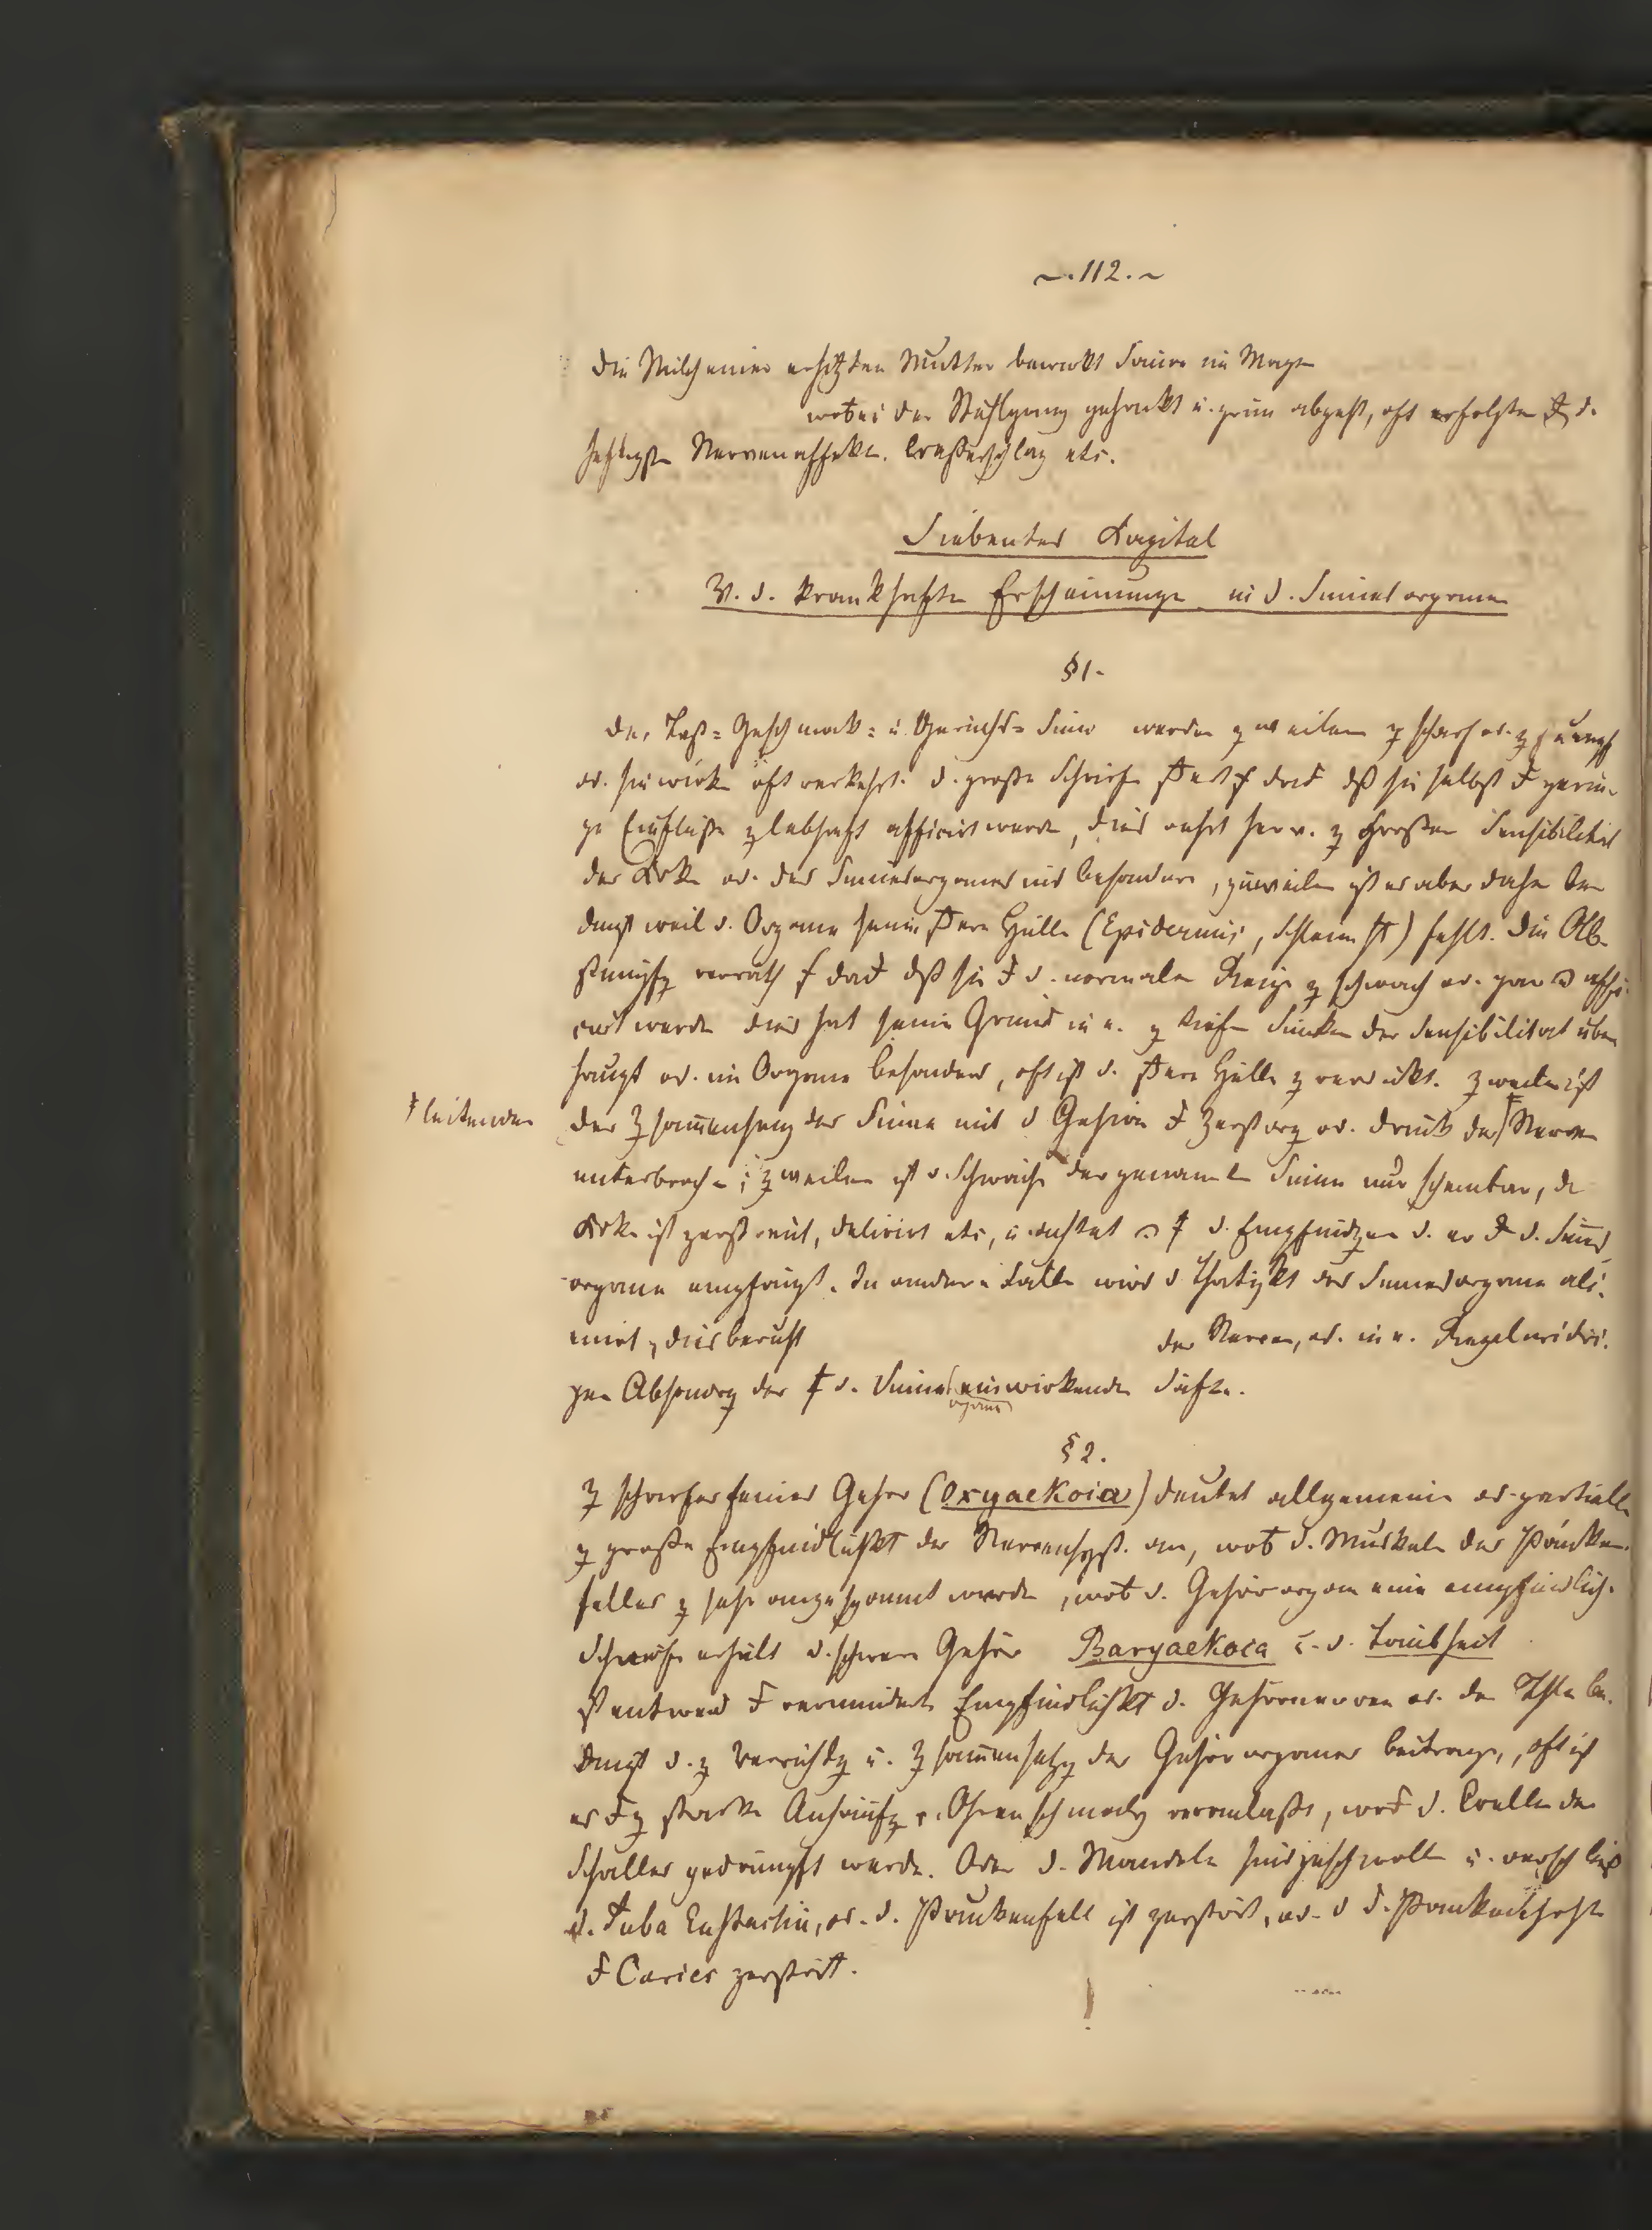 ~. 112. ~
die Milch einer erhitzten Mutter bewirkt Säure im Magen
wobei der Stuhlgang gehackt u. grün abgeht, oft erfolgten d.
heftigsten Nervenaffekte. etc.
Siebentes Kapitel
V. d. krankhaften Erscheinungen in d. Sinnesorganen
§ 1.
der Tast= Geschmack= u. Geruchs= Sinn werden zuweilen z scharf od. z stumpf
od. sie wirken oft verkehrt. d. große Schärfe daß sie selbst gerin-
ge Einflüße z lebhaft afficirt werden, dies rührt her v. z großer Sensibilität
der Kranken od. des Sinnesorganes ins besondere, zuweilen ist es aber daher be
dingt weil d. Organe seine Hülle (Epidermis, Schleim) fehlt. Die Ab-
stumpfg verräth daß sie d. normalen Reize z schwach od. gar affi-
cirt werden dies hat seinen Grund in e. z tiefen Sinken der Sensibilität über
haupt od. im Organe besonders, oft ist d. Hülle z verdickt. zweilen ist
leitenden
der Zsam̄enhang der Sinne mit d Gehirn Zerstörg od. Druck der Nerven
unterbrochen; zweilen ist d. Schwäche der genannten Sinne nur scheinbar, de
Krke ist zerstreut, delirirt etc, u. achtet d. Empfindgen d. er d. Sinnes
organe empfängt. In andern Fällen wird d Thätigkt der Sinnesorgane ali-
enirt, dies beruht der Nerven, od. in e. Regelwidri-
gen Absondrg der d. Sinnes einwirkenden Säfte.
organe
§ 2.
Z scharfes feines Gehör (Oxyaekoia) deutet allgemeine od. partielle
z große Empfindlichkt der Nervensyst. an, wob d. Muskeln des Pauken-
felles z sehr angespannt werden, wob d. Gehörorgan eine empfindliche
Schärfe erhält d. schwere Gehör Baryaekoea u. d. Taubheit
ist entwed verminderte Empfindlichkt d. Gehörnerven od. der Thle be-
dingt d. z Verrichtg u. Zsam̄ensetzg des Gehörorganes beitragen, oft ist
es z starke Anhäufg v. Ohrenschmalz veranlaßt, d. Welle des
Schalles gedämpft werde. Oder d. Mandeln sind geschwollen u. verschließ
d. Tuba Eustachii, od. d. Paukenfell ist zerstört, od. d. Paukenhöhle
Caries zerstört.